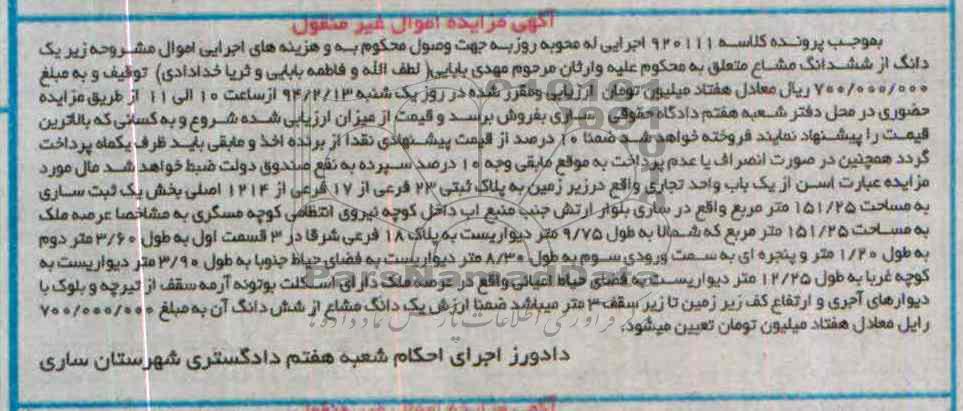 آگهی مزایده اموال غیر منقول
بموجب پرونده کلاسه ۹۲۰۱۱۱ اجرایی له محبوبه روزبه جهت وصول محکوم به و هزینه های اجرایی اموال مشروحه زیر یک
دانگ از ششدانگ مشاع متعلق به محکوم علیه وارثان مرحوم مهدی بابایی( لطف الله و فاطمه بابایی و ثریا خدادادی) توقیف و به مبلغ
۷۰۰/۰۰۰/۰۰۰ ریال معادل هفتاد میلیون تومان ارزیابی ومقرر شده در روز یک شنبه ۹۴/۲/۱۳ ازساعت ۱۰ الی ۱۱ از طریق مزایده
حضوری در محل دفتر شعبه هفتم دادگاه حقوقی ساری بفروش برسد و قیمت از میزان ارزیابی شده شروع و به کسانی که بالاترین
قیمت را پیشنهاد نمایند فروخته خواهد شد ضمنا ۱۰ درصد از قیمت پیشنهادی نقدا از برنده اخذ و مابقی باید ظرف یکماه پرداخت
گردد همچنین در صورت انصراف یا عدم پرداخت به موقع مابقی وجه ۱۰ درصد سپرده به نفع صندوق دولت ضبط خواهد شد مال مورد
مزایده عبارت اسن از یک باب واحد تجاری واقع درزیر زمین به پلاک ثبتی ۲۳ فرعی از ۱۷ فرعی از ۱۲۱۴ اصلی بخش یک ثبت ساری
به مساحت ۱۵۱/۲۵ متر مربع واقع در ساری بلوار ارتش جنب منبع اب داخل کوچه نیروی انتظامی کوچه مسگری به مشاخصا عرصه ملک
به مساحت ۱۵۱/۲۵ متر مربع که شمالا به طول ۹/۷۵ متر دیواریست به پلاک ۱۸ فرعی شرقا در ۳ قسمت اول به طول ۳/۶۰ متر دوم
به طول ۱/۲۰ متر و پنجره ای به سمت ورودی سوم به طول ۸/۳۰ متر دیواریست به فضای حیاط جنوبا به طول ۳/۹۰ متر دیواریست به
کوچه غربا به طول ۱۲/۲۵ متر دیواریست به فضای حیاط اعیانی واقع در عرصه ملک دارای اسکلت بوتونه آرمه سقف از تیرچه و بلوک با
دیوارهای آجری و ارتفاع کف زیر زمین تا زیر سقف ۳ متر میباشد ضمنا ارزش یک دانگ مشاع از شش دانگ آن به مبلغ ۷۰۰/۰۰۰/۰۰۰
رایل معادل هفتاد میلیون تومان تعیین میشود.
دادورز اجرای احکام شعبه هفتم دادگستری شهرستان ساری
ParsNamadData